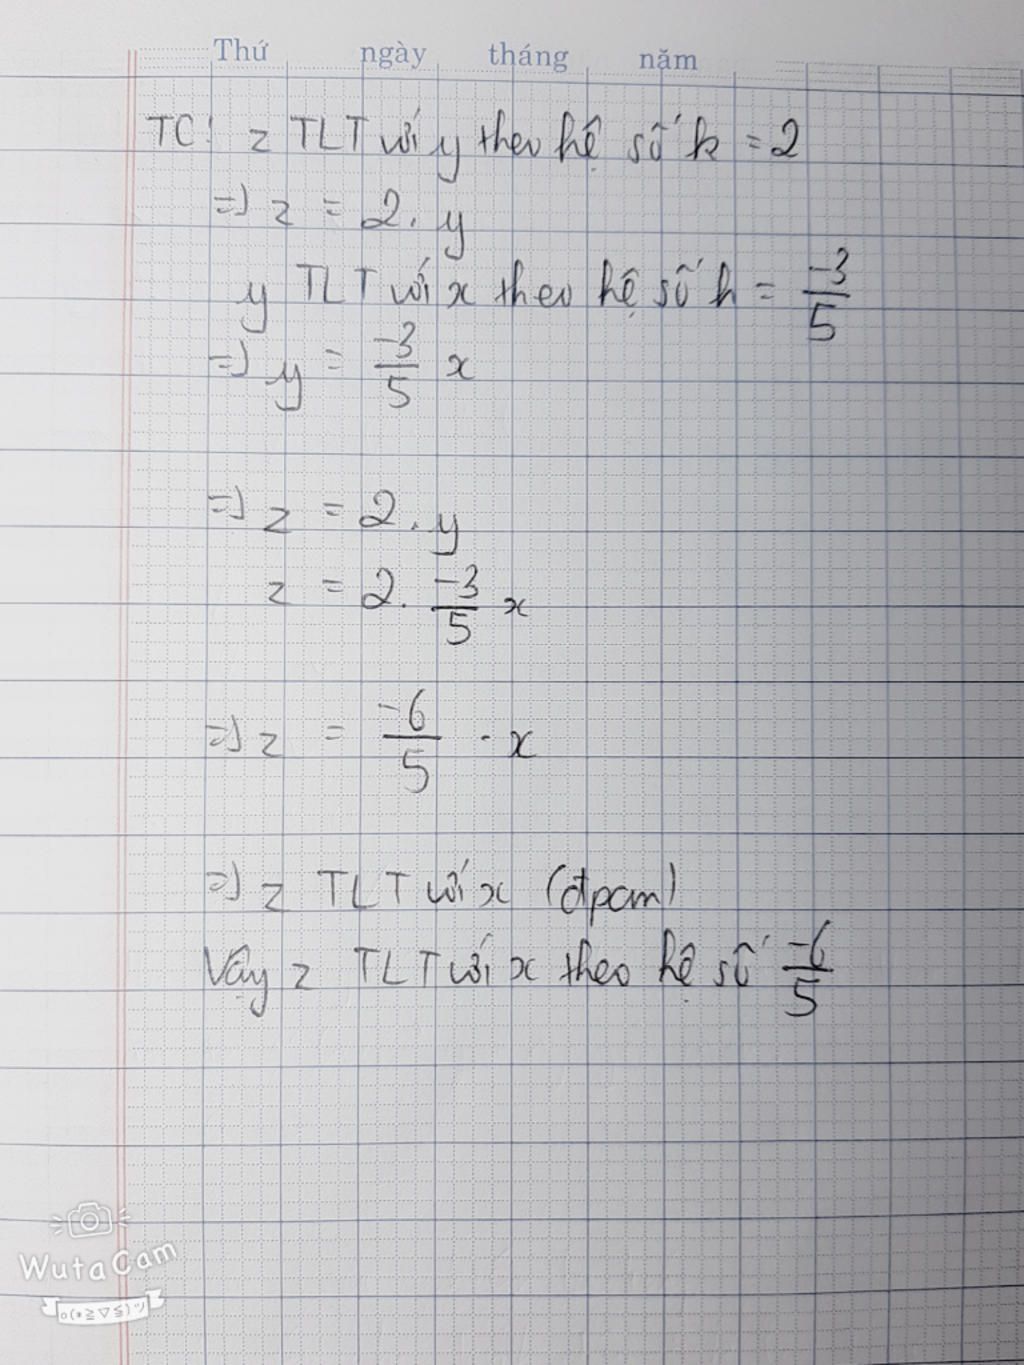 Thứ ngày tháng năm
TC: z TLT với y theo hệ số k = 2
=> z = 2. y
y TLT với x theo hệ số h = -3/5
=> y = -3/5 x
=> z = 2. y
z = 2. -3/5 x
=> z = -6/5 . x
=> z TLT với x (đpcm)
Vậy z TLT với x theo hệ số -6/5
WutaCam
o(*≧▽≦)ツ